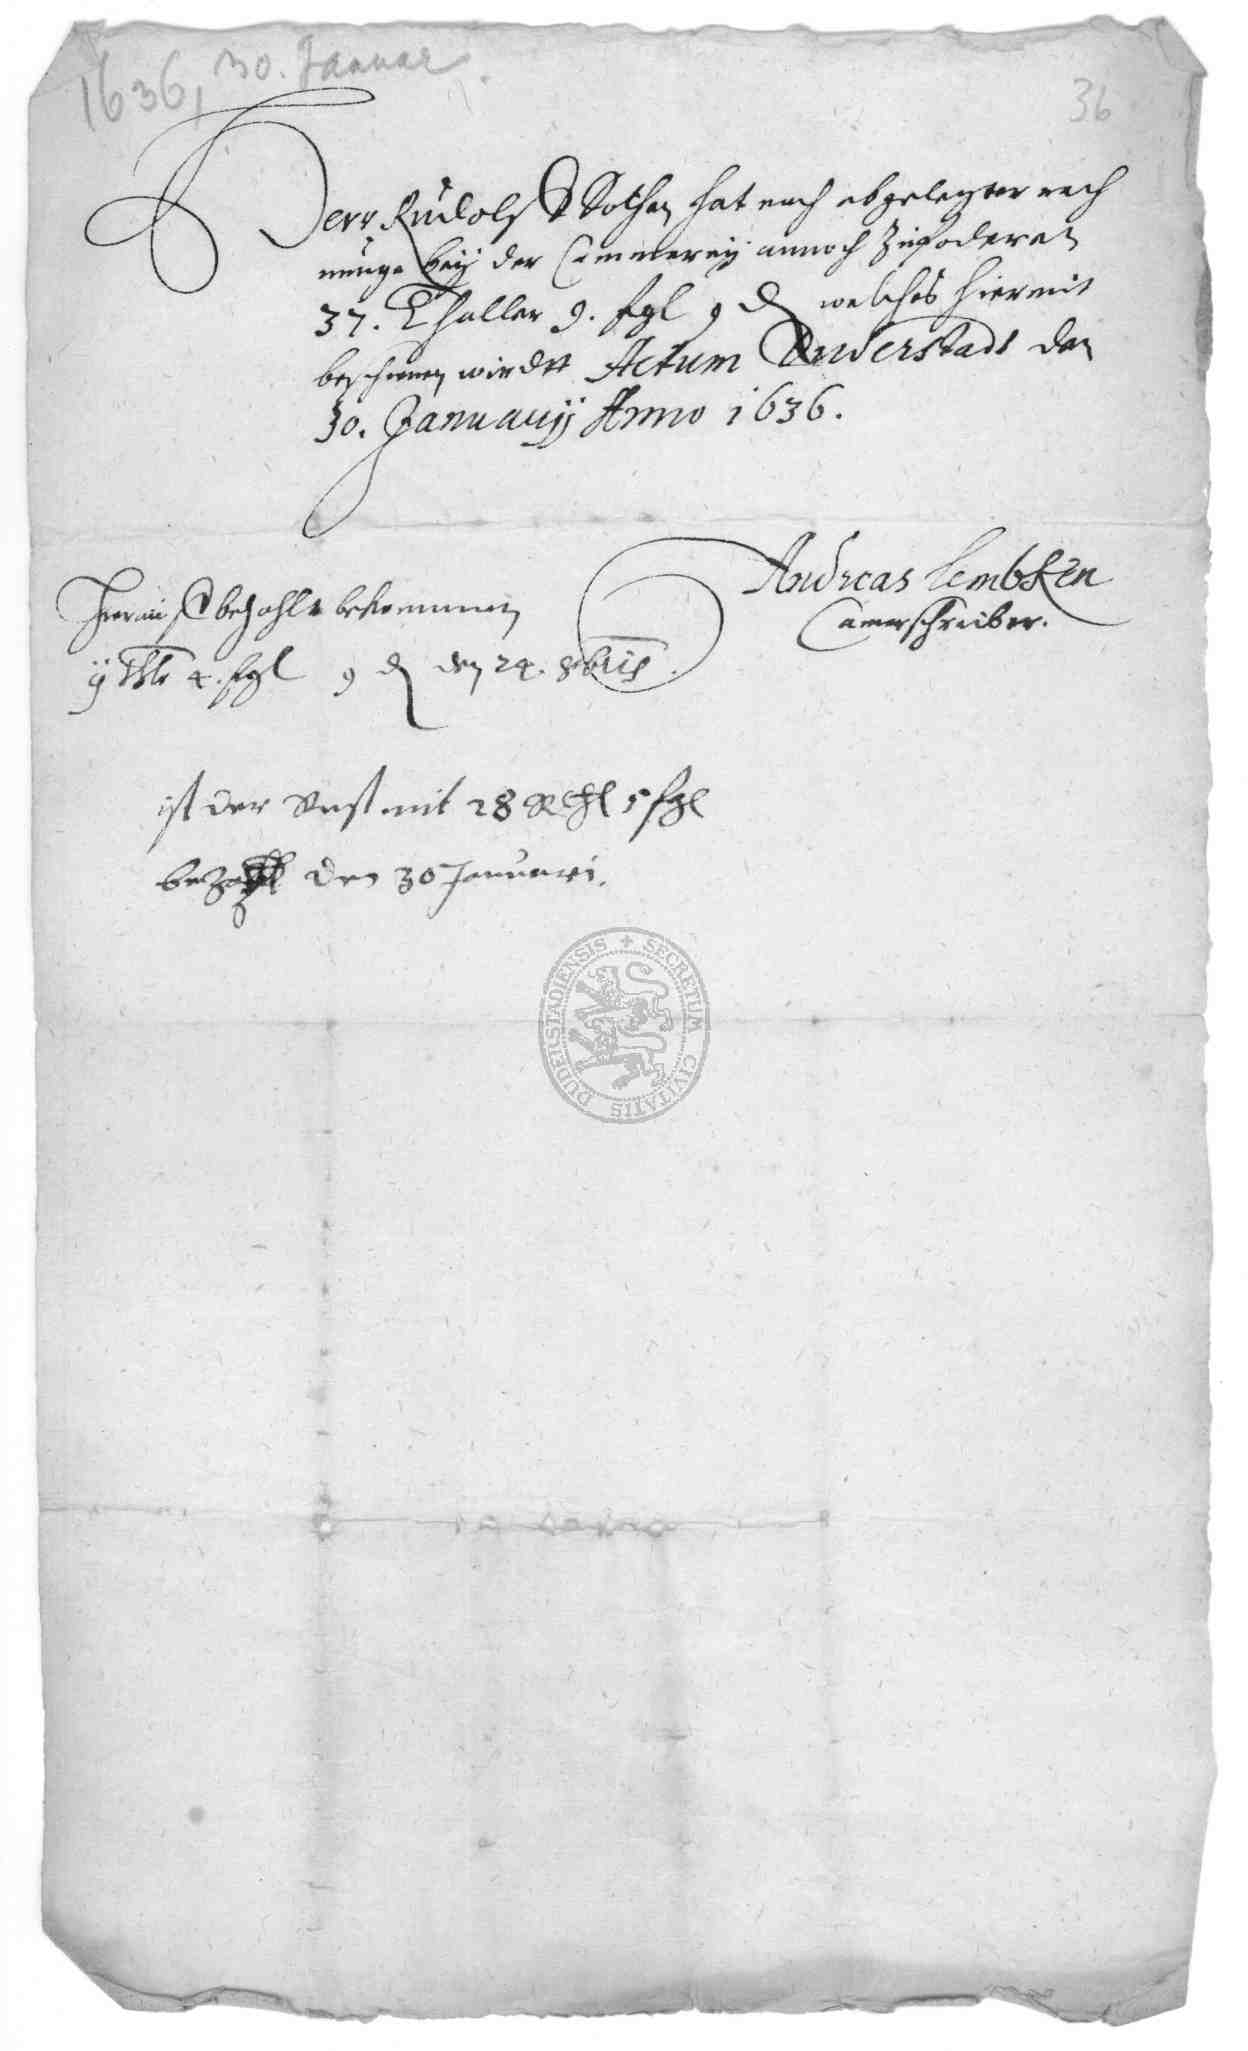 1636, 30. Januar.
36
Herr Rudolf Bothen hat nach abgelegter rech
nunge bey der Cammerey annoch zufoderen
37. Thaller 9. ßgl 9 d welches hiermit
bescheinen wirdtt Actum Duderstadt den
30. Januarij Anno 1636.
Andreas Lembken
Camerschreiber.
Hierauf bezahlt bekommen
4. ßgl 9 d den 24. 8bris
ist der Rest mit 28 5 ßgl
bezahl den 30 Januari.
SECRETUM CIVITATIS DUDERSTADIENSIS